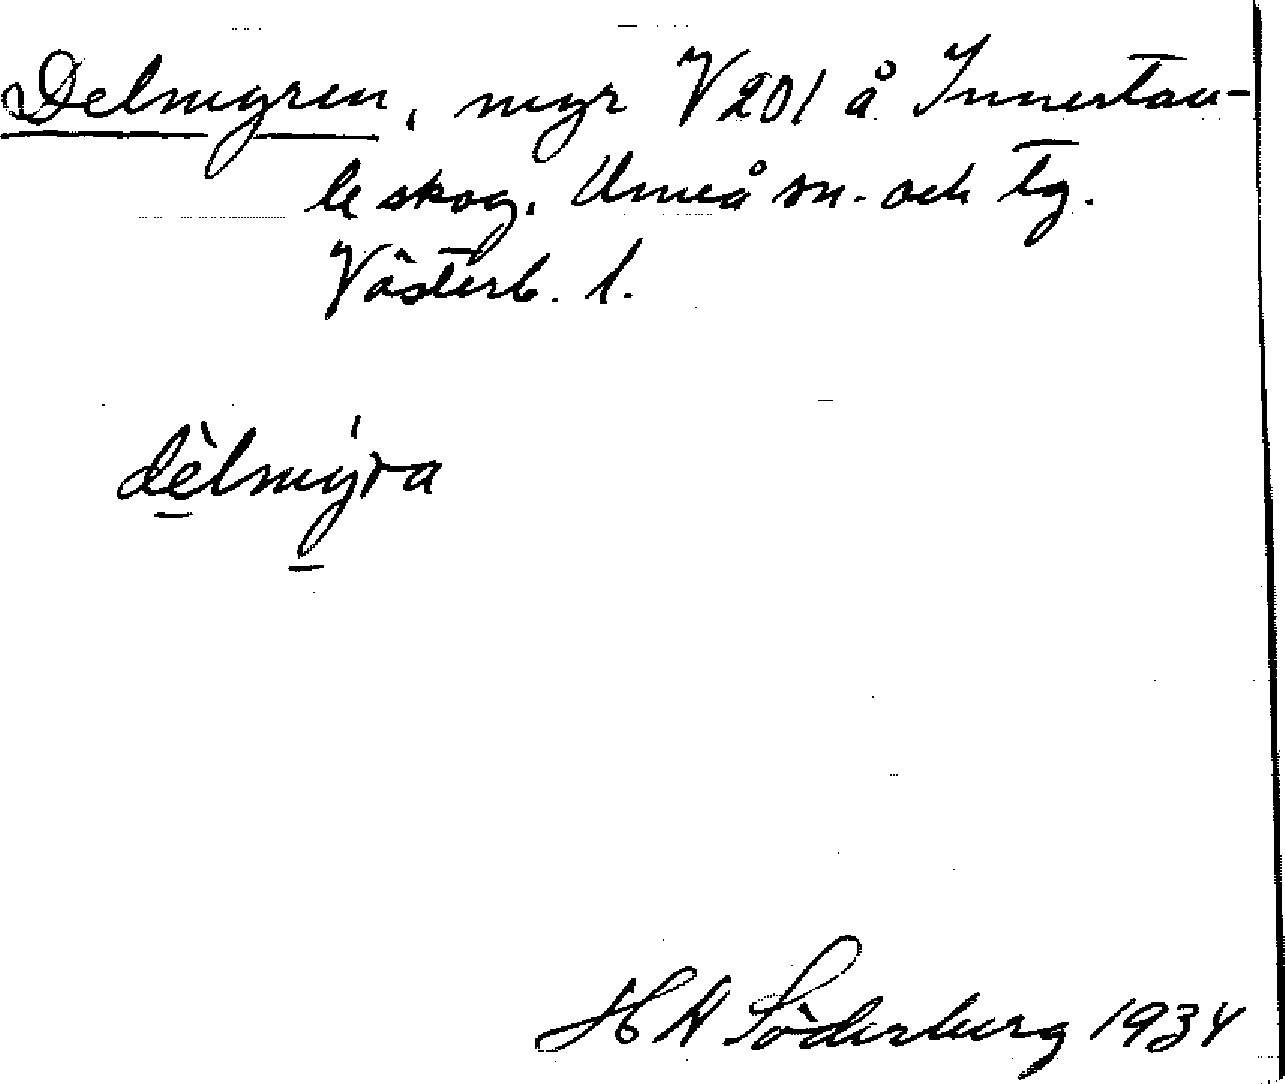 Delmyren, myr V 201 å Innertav-
le skog. Umeå sn. och tg.
Västerb. l.
dèlmýra
H A Söderberg 1934